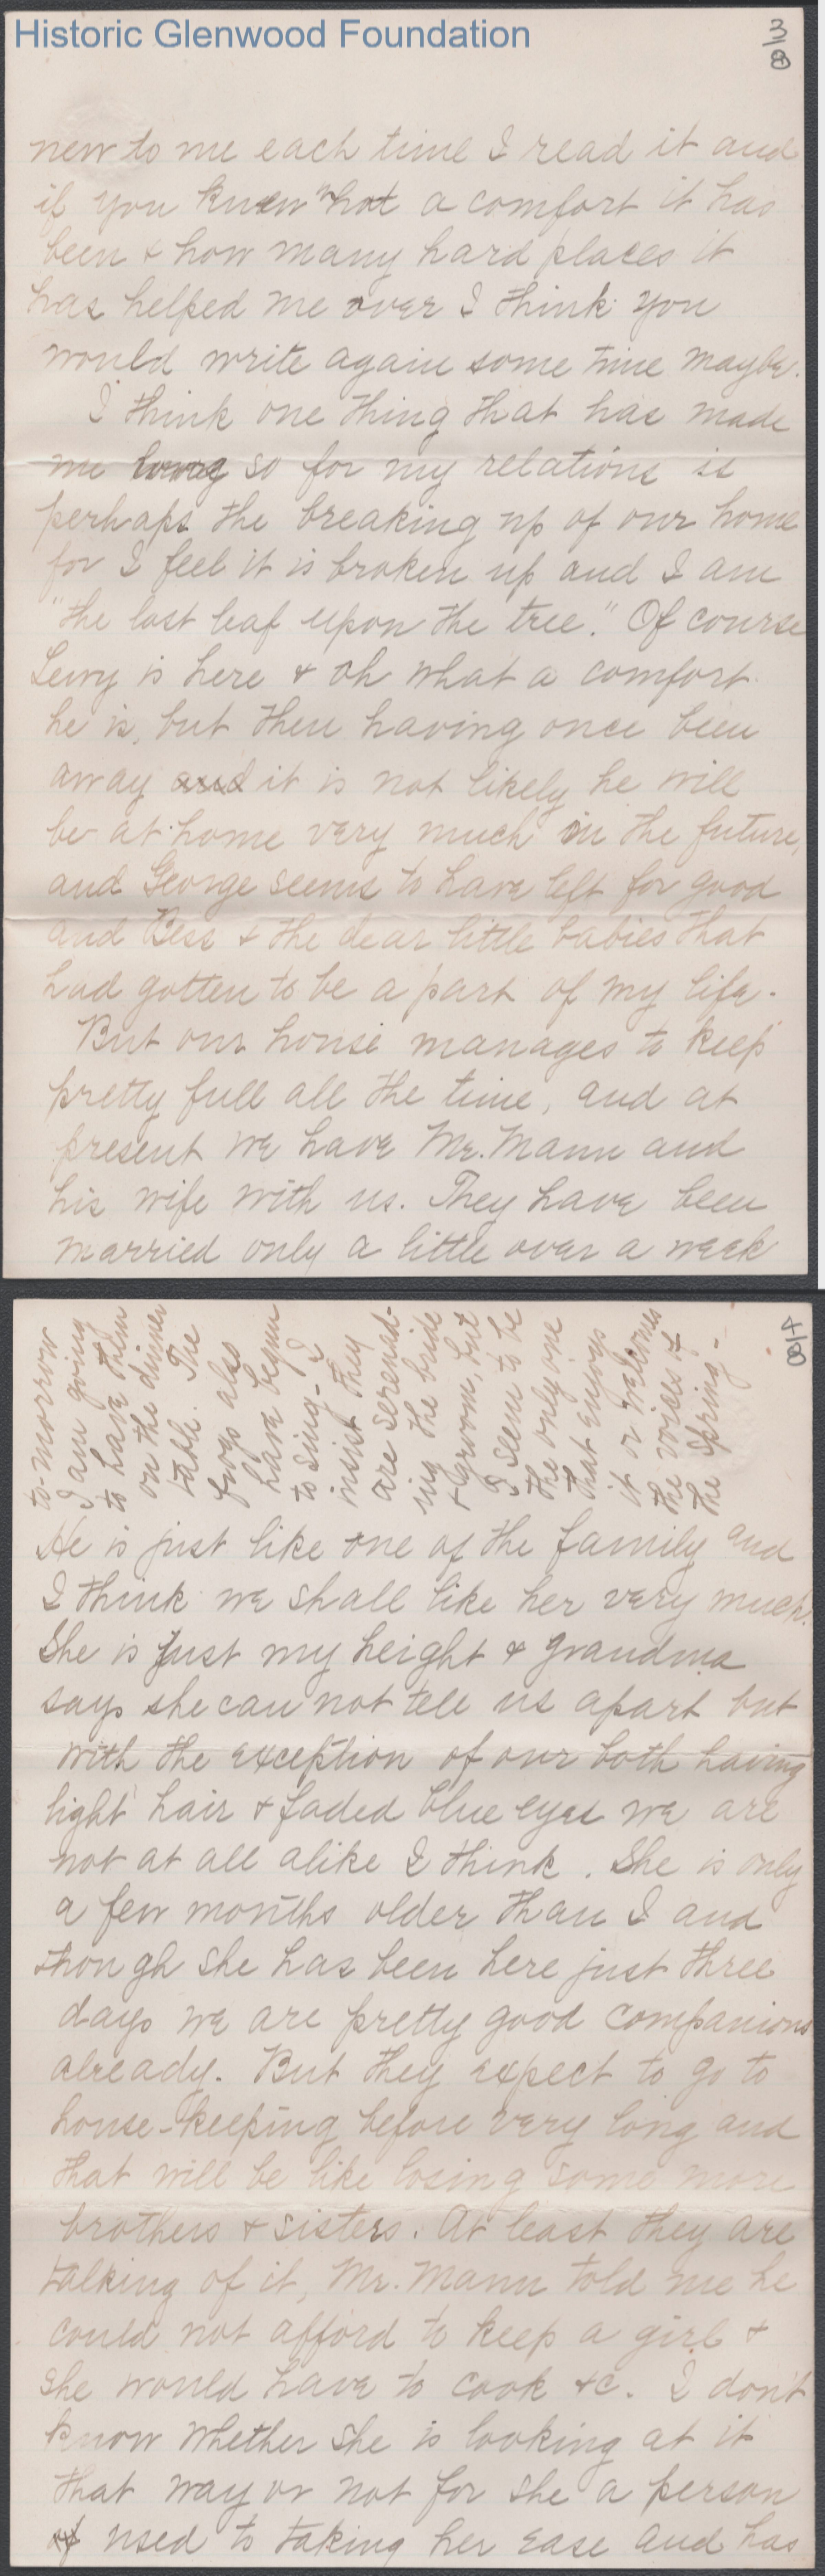 Historic Glenwood Foundation
3/8
new to me each time I read it and
if you knew what a comfort it has
been & how many hard places it
has helped me over I think you
would write again some time maybe.
I think one thing that has made
me long so for my relations is
perhaps the breaking up of our home
for I feel it is broken up and I am
"the last leaf upon the tree." Of course
Levy is here & oh what a comfort
he is, but then having once been
away and it is not likely he will
be at home very much in the future,
and George seems to have left for good
and Bess & the dear little babies that
had gotten to be a part of my life.
But our house manages to keep
pretty full all the time, and at
present we have Mr. Mann and
his wife with us. They have been
married only a little over a week
4/8
to-morrow
I am going
to have them
on the dinner
table. The
frogs also
have begun
to sing - I
insist they
are serenad-
ing the bride
& groom, but
I seem to be
the only one
that enjoys
it or welcomes
the voices of
the Spring -
He is just like one of the family and
I think we shall like her very much.
She is just my height & grandma
says she can not tell us apart but
with the exception of our both having
light hair & faded blue eyes we are
not at all alike I think. She is only
a few months older than I and
though she has been here just three
days we are pretty good companions
already. But they expect to go to
house-keeping before very long and
that will be like losing some more
brothers & sisters. At least they are
talking of it, Mr. Mann told me he
could not afford to keep a girl &
she would have to cook &c. I don't
know whether she is looking at it
that way or not for she a person
of used to taking her ease and has